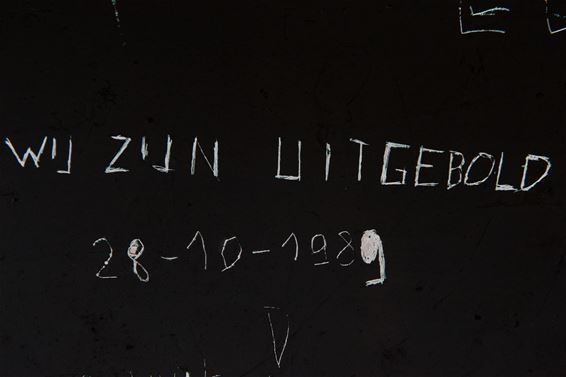 WIJ ZIJN UITGEBOLD
28-10-1989
V